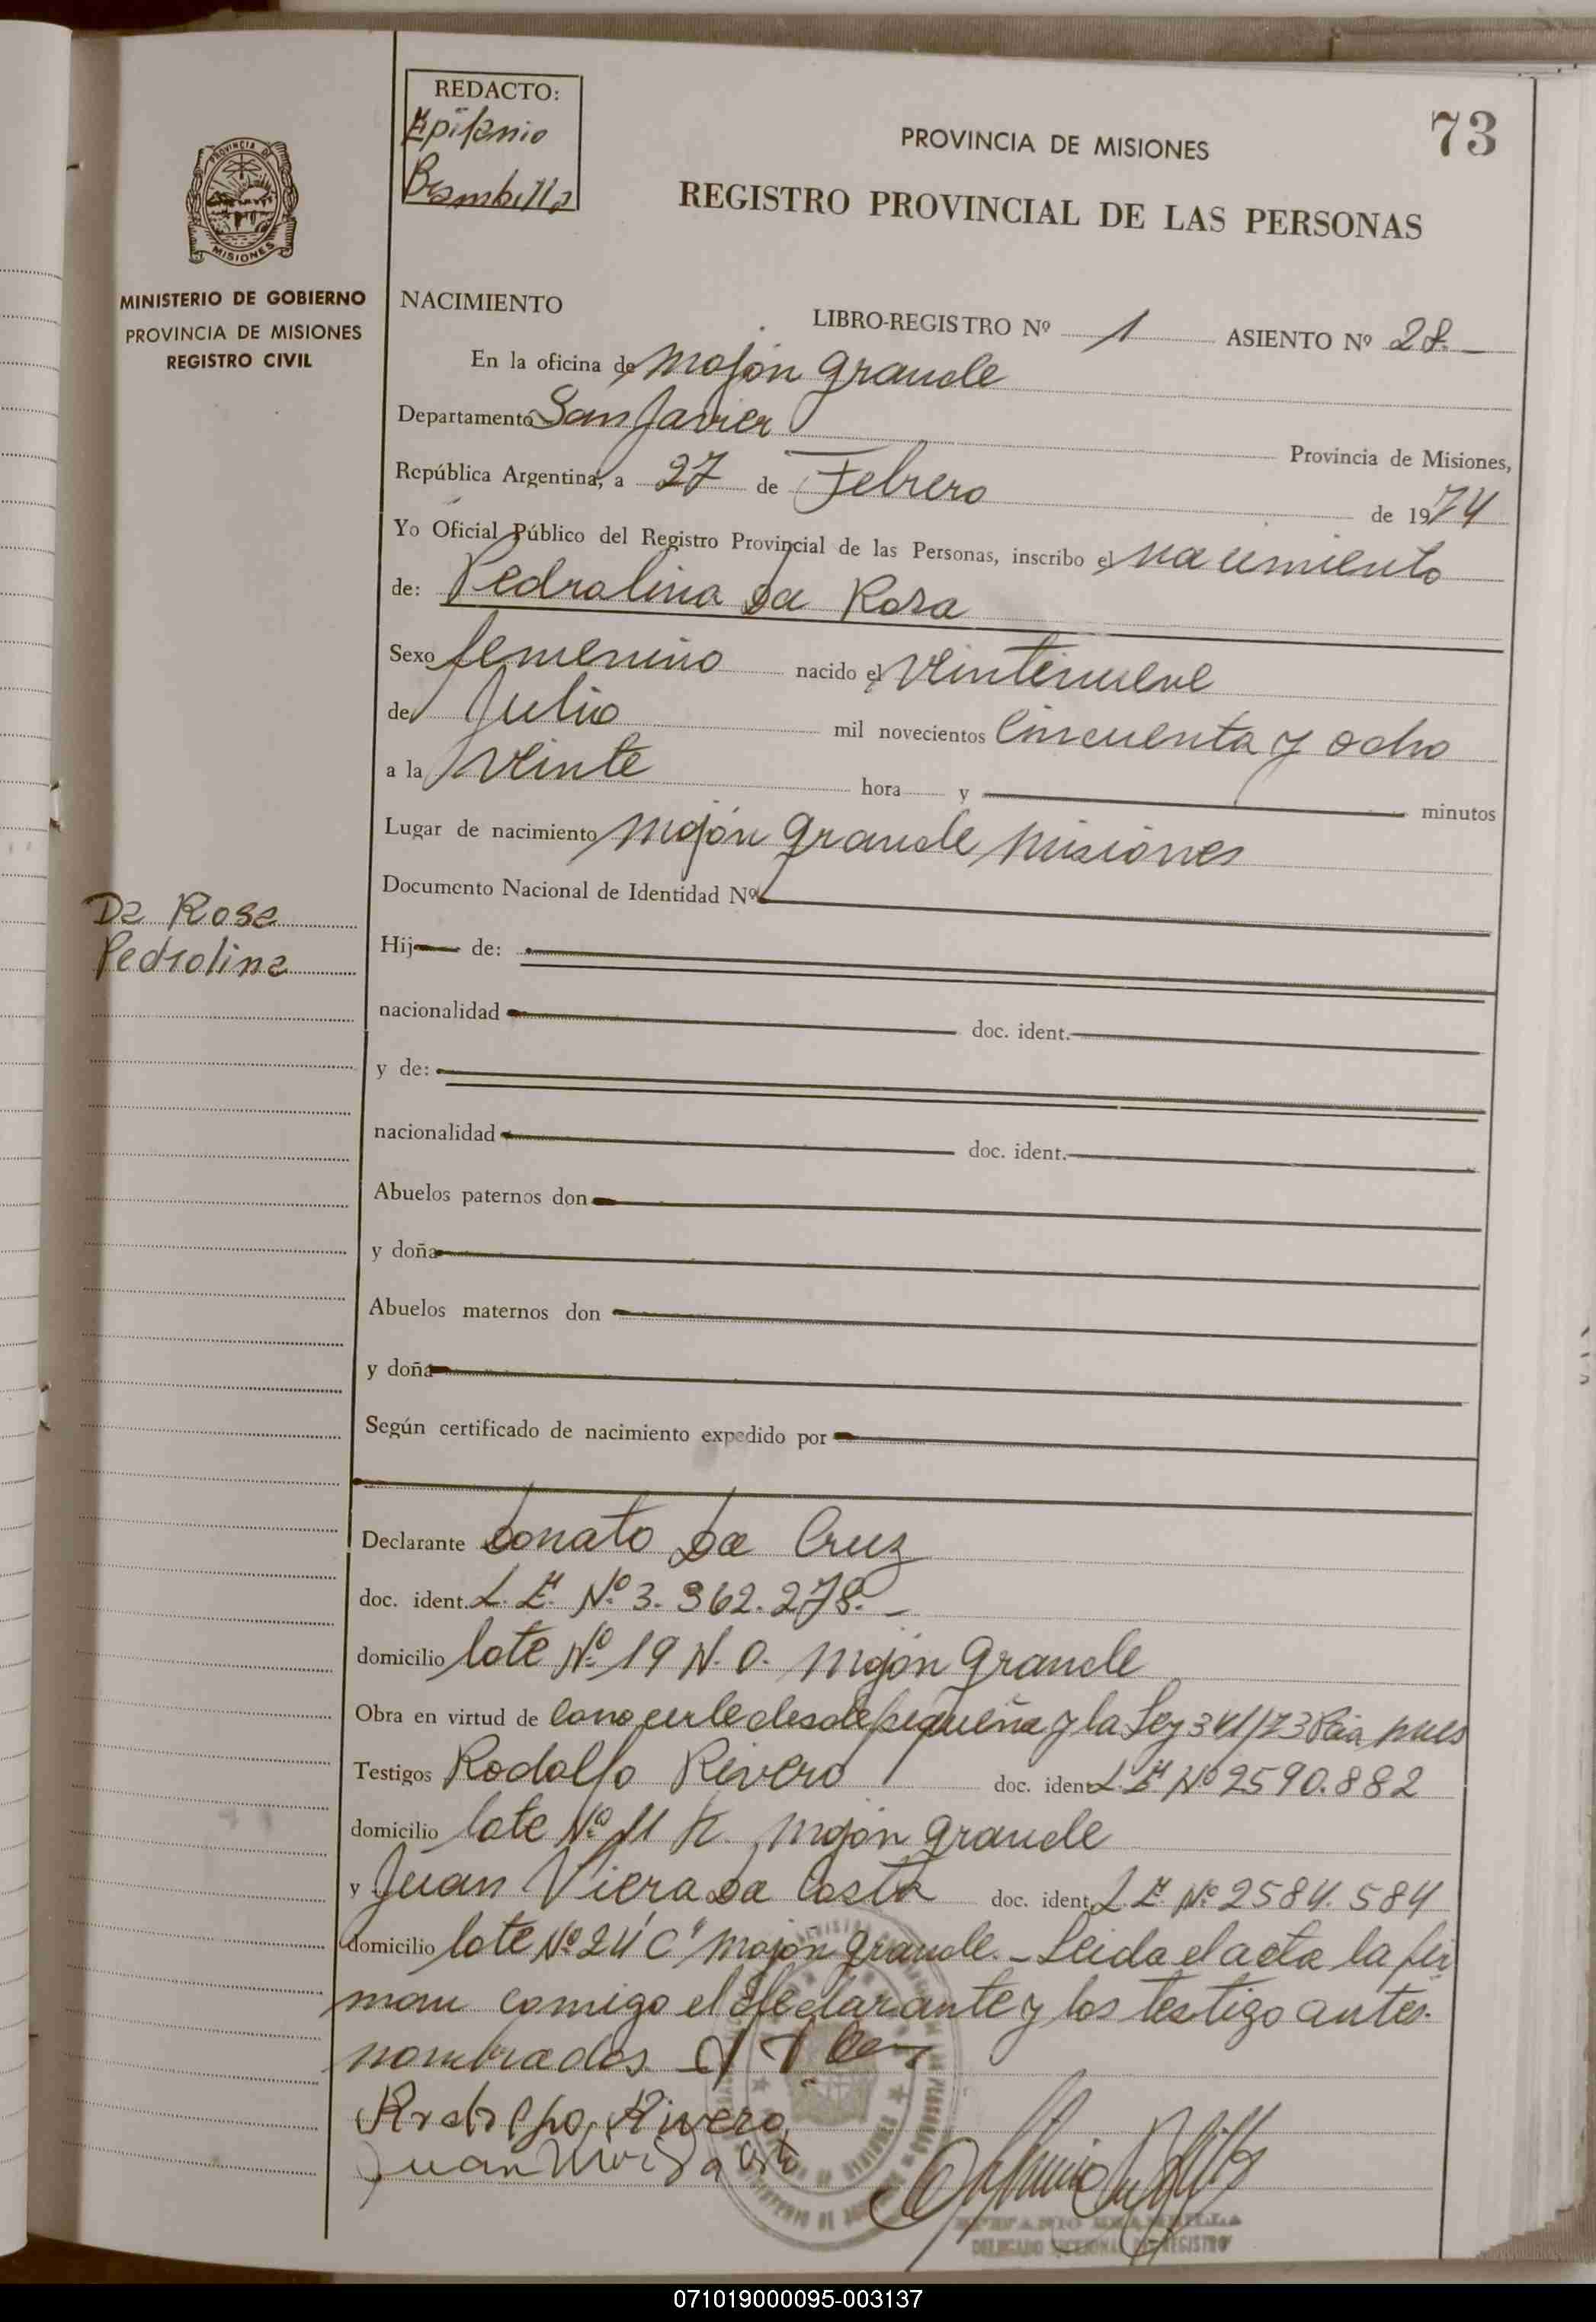 REDACTO:
Epifanio
Brambilla
73
PROVINCIA DE MISIONES
REGISTRO PROVINCIAL DE LAS PERSONAS
PROVINCIA DE
MISIONES
MINISTERIO DE GOBIERNO
PROVINCIA DE MISIONES
REGISTRO CIVIL
NACIMIENTO
LIBRO-REGISTRO Nº 1 ASIENTO Nº 28.
En la oficina de Mojón Grande
Departamento San Javier Provincia de Misiones,
República Argentina, a 27 de Febrero de 1974
Yo Oficial Público del Registro Provincial de las Personas, inscribo el nacimiento
de: Pedrolina Da Rosa
Sexo femenino nacido el Veintinueve
de Julio mil novecientos Cincuenta y ocho
a la Veinte hora y minutos
Lugar de nacimiento Mojón Grande Misiones
Documento Nacional de Identidad Nº
Da Rosa
Pedrolina
Hij de:
nacionalidad doc. ident.
y de:
nacionalidad doc. ident.
Abuelos paternos don
y doña
Abuelos maternos don
y doña
Según certificado de nacimiento expedido por
Declarante Donato Da Cruz
doc. ident. L. E. Nº 3.362.278.
domicilio lote Nº 19 N. O. Mojón Grande
Obra en virtud de conocerle desde pequeña y la Ley 341/73
Testigos Rodolfo Rivero doc. ident. L. E. Nº 2590.882
domicilio lote Nº 11 Mojón Grande
y Juan Viera Da Costa doc. ident. L. E. Nº 2584.584
domicilio lote Nº 24 "C" Mojón Grande. - Leida el acta la fir
man comigo el declarante y los testigo antes.
nombrados
Rodolfo Rivero
Juan Da Costa
EPIFANIO BRAMBILLA
DELEGADO SECCIONAL DE REGISTRO
071019000095-003137